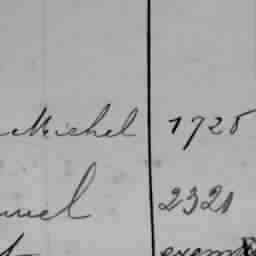 Michel 1725
uel 2321
exem